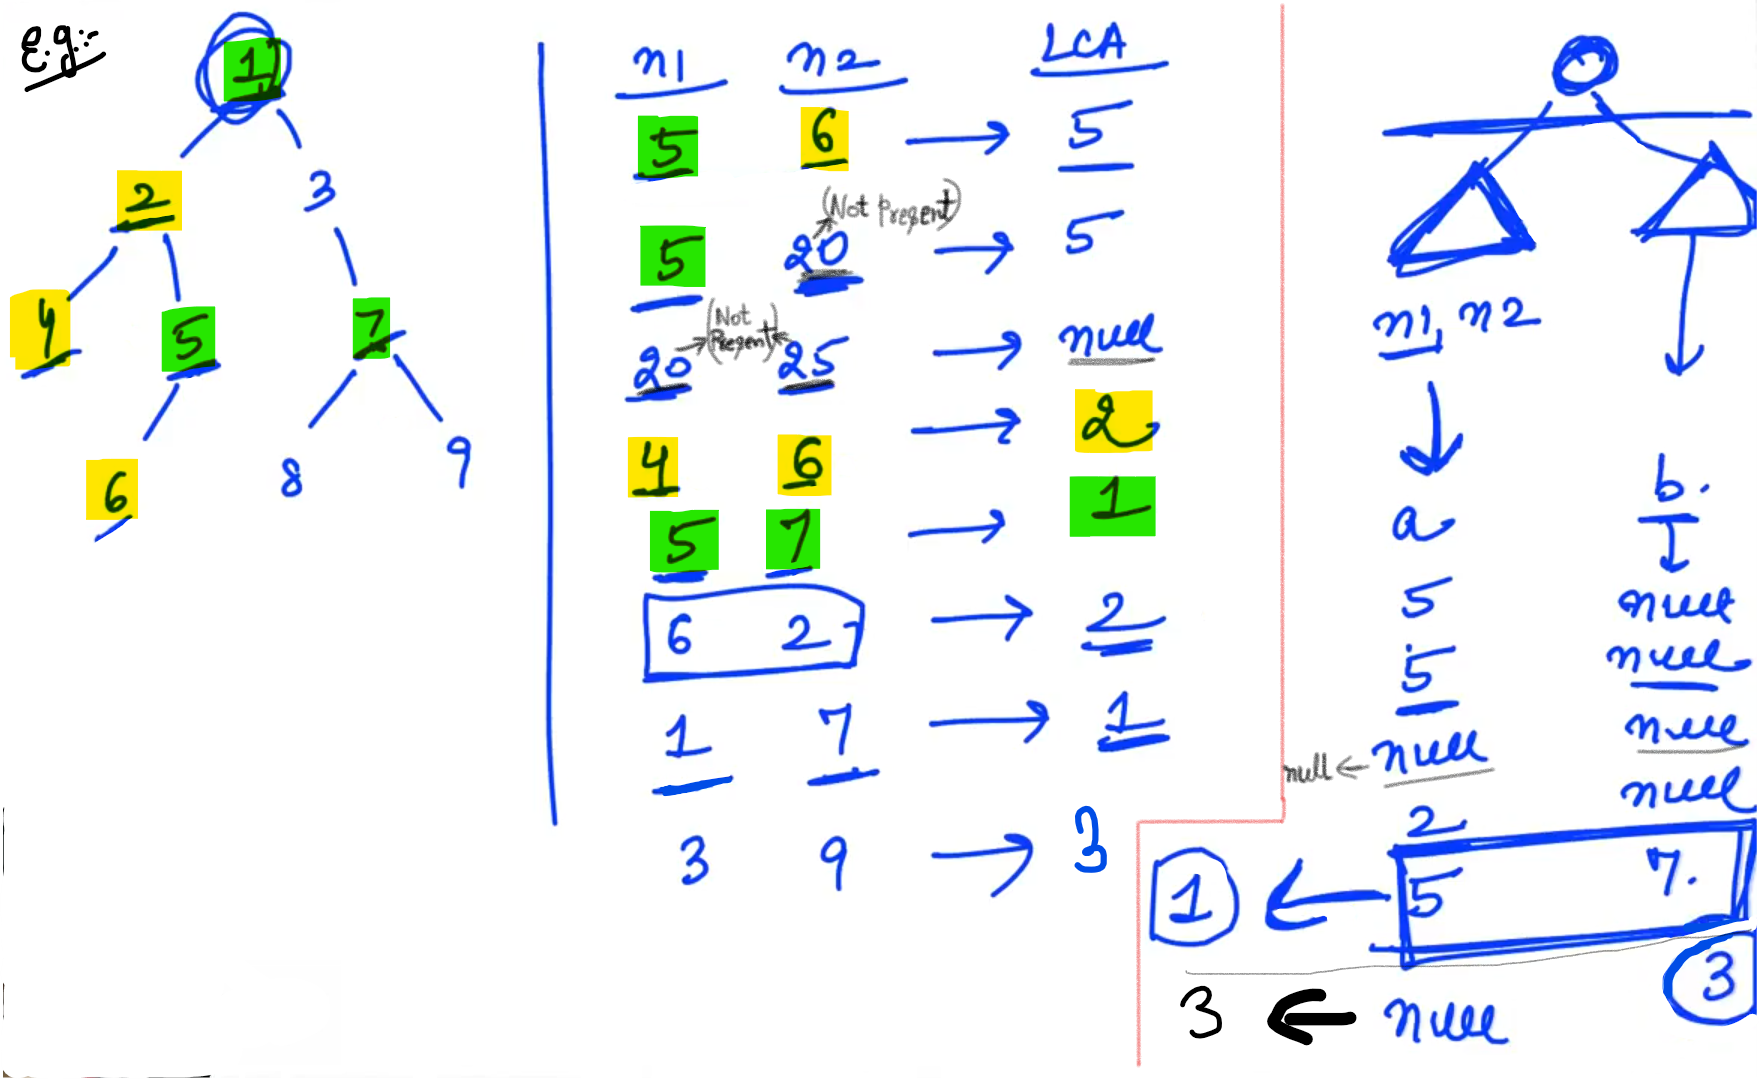 e.g:-
1
2 3
4 5 7
6 8 9
n1 n2 LCA
5 6 → 5
(Not Present)
5 20 → 5
(Not Present)
20 25 → null
4 6 → 2
5 7 → 1
6 2 → 2
1 7 → 1
3 9 → 3
n1, n2
a b.
5 null
5 null
null ← null null
2 null
1 ← 5 7.
3 ← null 3